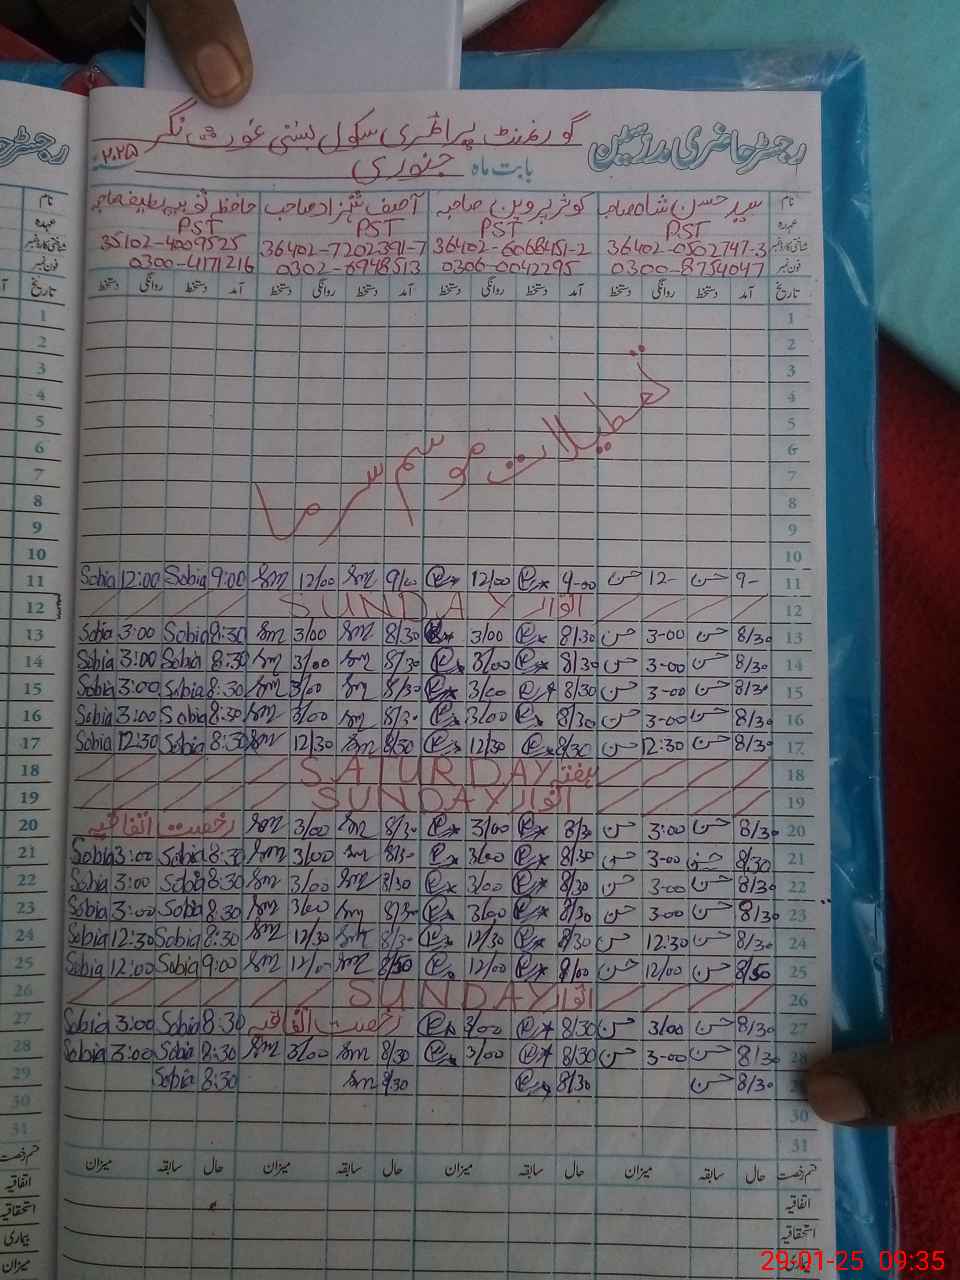 رجسٹر حاضری مدرسین گورنمنٹ پرائمری سکول بستی غوث نگر
بابت ماہ جنوری ۲۰۲۵
نام سید حسن شاہ صاحب کوثر پروین صاحبہ آصف شہزاد صاحب حافظہ ثوبیہ لطیف صاحبہ
عہدہ PST PST PST PST
شناختی کارڈ نمبر 36402-0502747-3 36402-6068451-2 36402-7202391-7 35102-4009525
فون نمبر 0300-8754047 0306-0042295 0302-6948513 0300-4171216
تاریخ آمد دستخط روانگی دستخط آمد دستخط روانگی دستخط آمد دستخط روانگی دستخط آمد دستخط روانگی دستخط
1
2
3
4
5
6
7
8
9
10
تعطیلات موسم سرما
11 9- حسن 12- حسن 9-00 12/00 9/00 Sm 12/00 Sm 9:00 Sobia 12:00 Sobia
12 اتوار SUNDAY
13 8/30 حسن 3-00 حسن 8/30 3/00 8/30 Sm 3/00 Sm 8:30 Sobia 3:00 Sobia
14 8/30 حسن 3-00 حسن 8/30 3/00 8/30 Sm 3/00 Sm 8:30 Sobia 3:00 Sobia
15 8/30 حسن 3-00 حسن 8/30 3/00 8/30 Sm 3/00 Sm 8:30 Sobia 3:00 Sobia
16 8/30 حسن 3-00 حسن 8/30 3/00 8/30 Sm 3/00 Sm 8:30 Sobia 3:00 Sobia
17 8/30 حسن 12:30 حسن 8/30 12/30 8/30 Sm 12/30 Sm 8:30 Sobia 12:30 Sobia
18 ہفتہ SATURDAY
19 اتوار SUNDAY
20 8/30 حسن 3:00 حسن 8/30 3/00 8/30 Sm 3/00 Sm رخصت اتفاقیہ
21 8/30 حسن 3-00 حسن 8/30 3/00 8/30 Sm 3/00 Sm 8:30 Sobia 3:00 Sobia
22 8/30 حسن 3-00 حسن 8/30 3/00 8/30 Sm 3/00 Sm 8:30 Sobia 3:00 Sobia
23 8/30 حسن 3-00 حسن 8/30 3/00 8/30 Sm 3/00 Sm 8:30 Sobia 3:00 Sobia
24 8/30 حسن 12:30 حسن 8/30 12/30 8/30 Sm 12/30 Sm 8:30 Sobia 12:30 Sobia
25 حسن 12/00 حسن 12/00 Sm 12/00 Sm 9:00 Sobia 12:00 Sobia
26 اتوار SUNDAY
27 8/30 حسن 3/00 حسن 8/30 3/00 رخصت اتفاقیہ 8:30 Sobia 3:00 Sobia
28 8/30 حسن 3-00 حسن 8/30 3/00 8/30 Sm 3/00 Sm 8:30 Sobia 3:00 Sobia
29 8/30 حسن 8/30 8/30 Sm 8:30 Sobia
30
31
قسم رخصت حال سابقہ میزان حال سابقہ میزان حال سابقہ میزان حال سابقہ میزان
اتفاقیہ
استحقاقیہ
بیماری
29-01-25 09:35